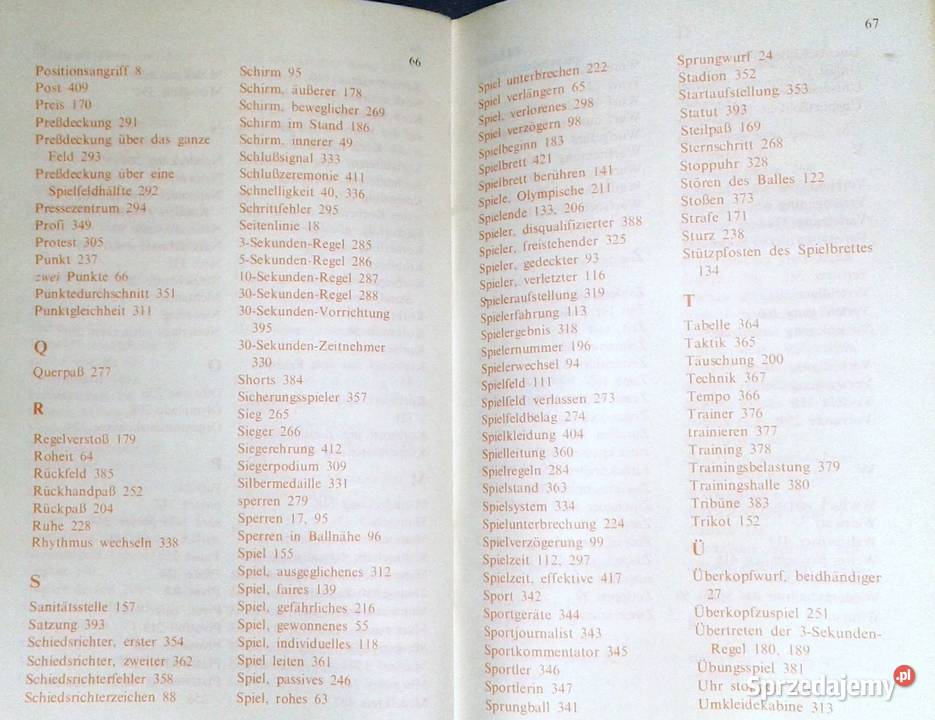 66
Positionsangriff 8
Post 409
Preis 170
Preßdeckung 291
Preßdeckung über das ganze
Feld 293
Preßdeckung über eine
Spielfeldhälfte 292
Pressezentrum 294
Profi 349
Protest 305
Punkt 237
zwei Punkte 66
Punktedurchschnitt 351
Punktgleichheit 311
Q
Querpaß 277
R
Regelverstoß 179
Roheit 64
Rückfeld 385
Rückhandpaß 252
Rückpaß 204
Ruhe 228
Rhythmus wechseln 338
S
Sanitätsstelle 157
Satzung 393
Schiedsrichter, erster 354
Schiedsrichter, zweiter 362
Schiedsrichterfehler 358
Schiedsrichterzeichen 88
Schirm 95
Schirm, äußerer 178
Schirm, beweglicher 269
Schirm im Stand 186
Schirm, innerer 49
Schlußsignal 333
Schlußzeremonie 411
Schnelligkeit 40, 336
Schrittfehler 295
Seitenlinie 18
3-Sekunden-Regel 285
5-Sekunden-Regel 286
10-Sekunden-Regel 287
30-Sekunden-Regel 288
30-Sekunden-Vorrichtung
395
30-Sekunden-Zeitnehmer
330
Shorts 384
Sicherungsspieler 357
Sieg 265
Sieger 266
Siegerehrung 412
Siegerpodium 309
Silbermedaille 331
sperren 279
Sperren 17, 95
Sperren in Ballnähe 96
Spiel 155
Spiel, ausgeglichenes 312
Spiel, faires 139
Spiel, gefährliches 216
Spiel, gewonnenes 55
Spiel, individuelles 118
Spiel leiten 361
Spiel, passives 246
Spiel, rohes 63
67
Spiel unterbrechen 222
Spiel verlängern 65
Spiel, verlorenes 298
Spiel verzögern 98
Spielbeginn 183
Spielbrett 421
Spielbrett berühren 141
Spiele, Olympische 211
Spielende 133, 206
Spieler, disqualifizierter 388
Spieler, freistehender 325
Spieler, gedeckter 93
Spieler, verletzter 116
Spieleraufstellung 319
Spielerfahrung 113
Spielergebnis 318
Spielernummer 196
Spielerwechsel 94
Spielfeld 111
Spielfeld verlassen 273
Spielfeldbelag 274
Spielkleidung 404
Spielleitung 360
Spielregeln 284
Spielstand 363
Spielsystem 334
Spielunterbrechung 224
Spielverzögerung 99
Spielzeit 112, 297
Spielzeit, effektive 417
Sport 342
Sportgeräte 344
Sportjournalist 343
Sportkommentator 345
Sportler 346
Sportlerin 347
Sprungball 341
Sprungwurf 24
Stadion 352
Startaufstellung 353
Statut 393
Steilpaß 169
Sternschritt 268
Stoppuhr 328
Stören des Balles 122
Stoßen 373
Strafe 171
Sturz 238
Stützpfosten des Spielbrettes
134
T
Tabelle 364
Taktik 365
Täuschung 200
Technik 367
Tempo 366
Trainer 376
trainieren 377
Training 378
Trainingsbelastung 379
Trainingshalle 380
Tribüne 383
Trikot 152
Ü
Überkopfwurf, beidhändiger
27
Überkopfzuspiel 251
Übertreten der 3-Sekunden-
Regel 180, 189
Übungsspiel 381
Uhr
Umkleidekabine 313
Sprzedajemy.pl